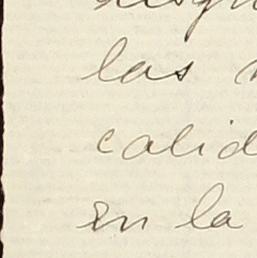 las
calid
en la